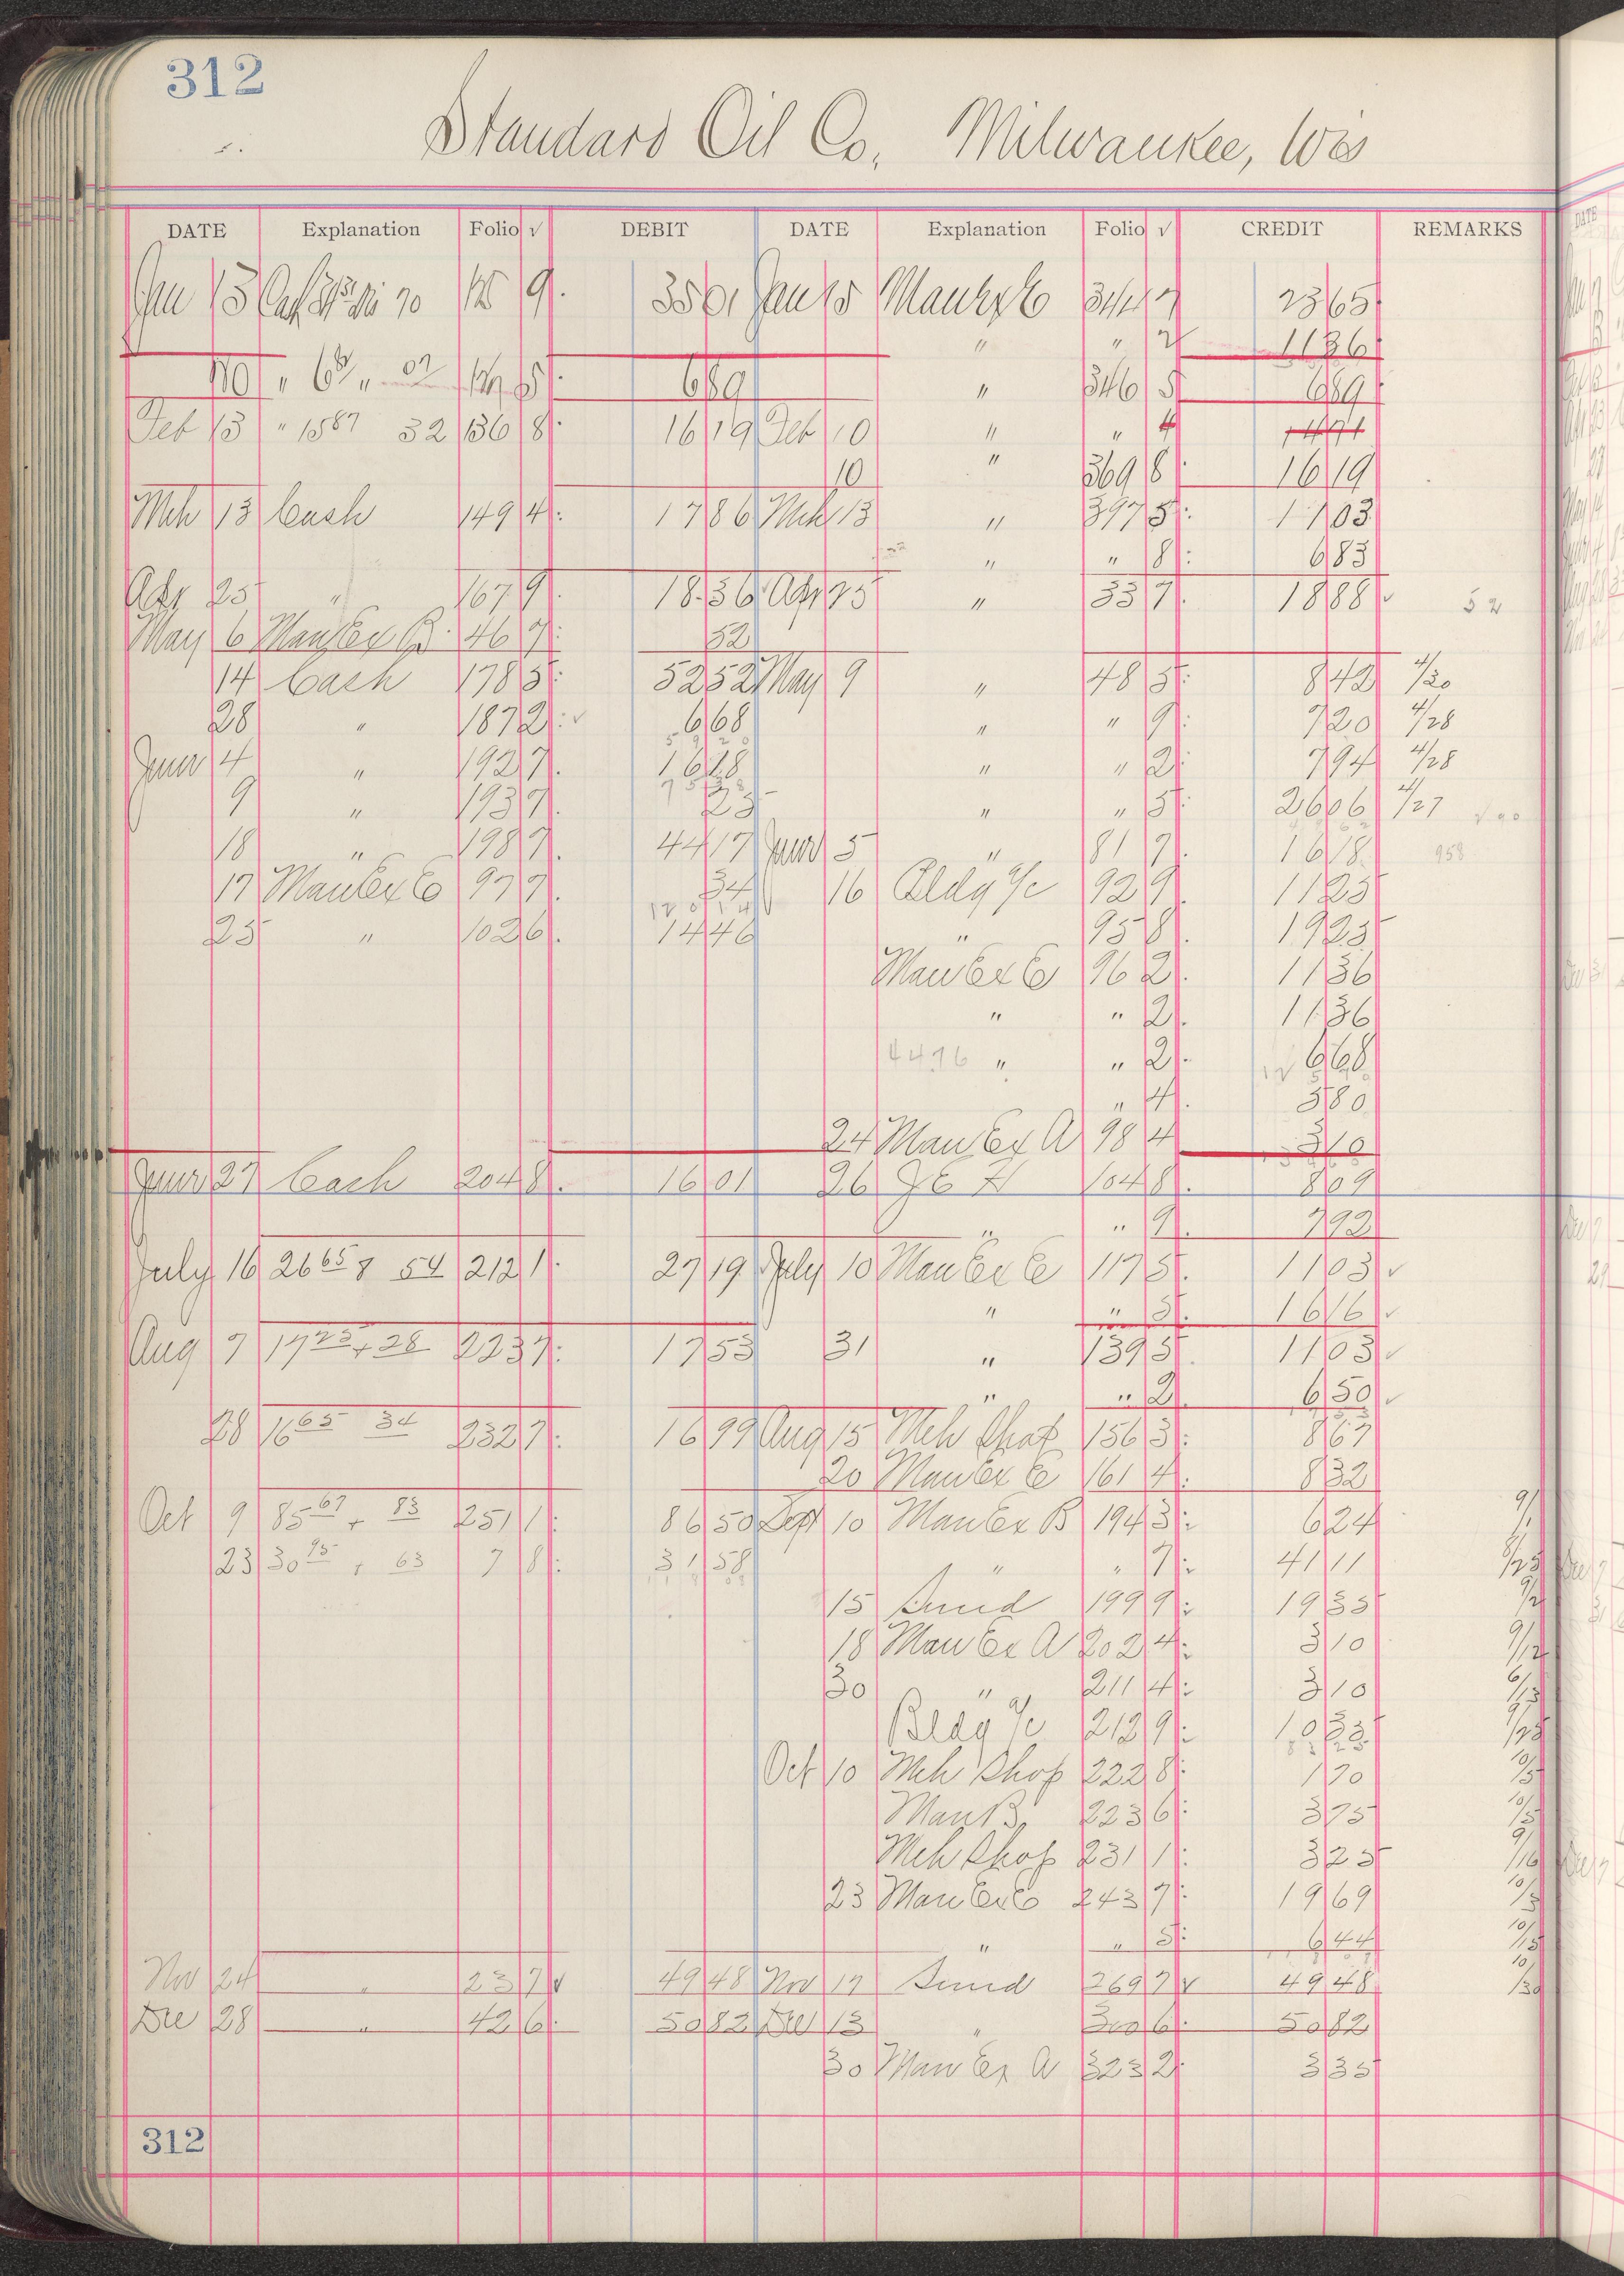 312
Standard Oil Co, Milwaukee, Wis
DATE Explanation Folio √ DEBIT DATE Explanation Folio √ CREDIT REMARKS
Jan 13 9 3501 Jan 15 Man Ex C 344 7 2365
" " 2 1136
689 " 346 5 689
Feb 13 " 1587 32 136 8 1619 Feb 10 " " 4
10 " 369 8 1619
Mch 13 Cash 149 4 1786 Mch 13 " 397 5 1103
" " 8 683
Apr 25 " 167 9 1836 Apr 25 " 33 7 1888 52
May 6 Man Ex B 46 7 52
14 Cash 178 5 5252 May 9 " 48 5 842 4/20
28 " 187 2 √ 668 " " 9 720 4/28
June 4 " 192 7 1618 " " 2 794 4/28
9 " 193 7 25 " " 5 2606 4/27
18 " 198 7 4417 June 5 " 81 7 1618 958
17 Man Ex C 97 7 34 16 Bldg a/c 92 9 1125
25 " 102 6 1446 " 95 8 1925
Man Ex C 96 2 1136
" " 2 1136
4476 " " 2 668
" 4 380
24 Man Ex A 98 4 310
June 27 Cash 204 8 1601 26 104 8 809
" " 9 792
July 16 26 65 & 54 212 1 2719 July 10 Man Ex C 117 5 1103 √
" " 5 1616 √
Aug 7 17 25 + 28 223 7 1753 31 " 139 5 1103 √
" " 2 650 √
28 16 65 34 232 7 1699 Aug 15 Mch Shop 156 3 867
20 Man Ex C 161 4 832
Oct 9 85 67 + 83 251 1 8650 Sept 10 Man Ex B 194 3 624
23 30 95 + 63 7 8 3158 " " 7 4111
15 Sund 199 9 1935
18 Man Ex A 202 4 310
30 " 211 4 310
Bldg a/c 212 9 1033
Oct 10 Mch Shop 222 8 170
Man B 223 6 375
Mch Shop 231 1 325
23 Man Ex C 243 7 1969
" " 5 644
Nov 24 " 23 7 √ 4948 Nov 17 Sund 269 7 √ 4948
Dec 28 " 42 6 5082 Dec 13 " 300 6 5082
30 Man Ex A 323 2 335
312